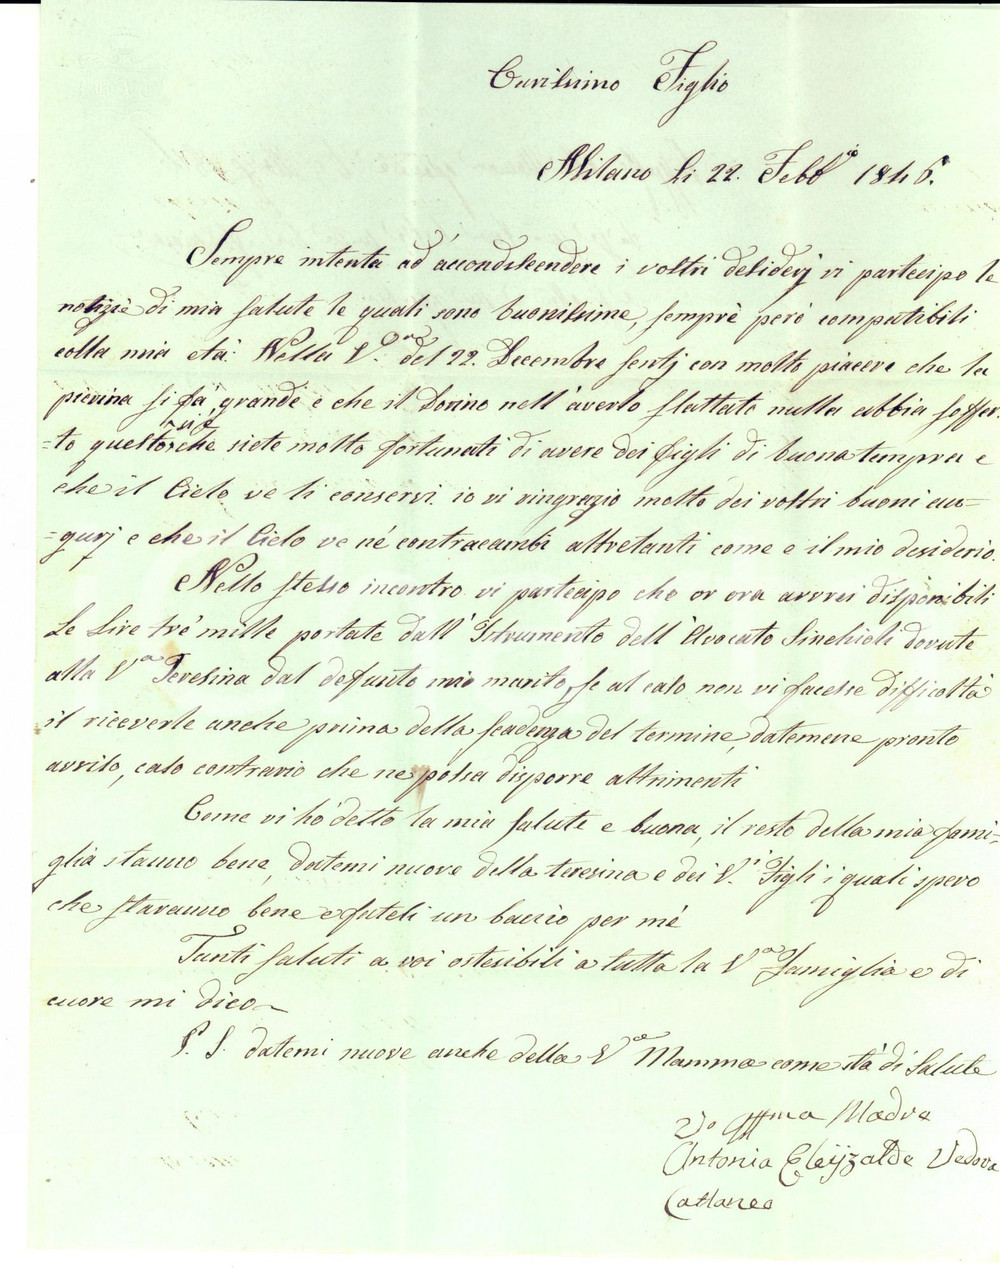 Carissimo Figlio
Milano li 22. Febb.º 1846.
Sempre intenta ad accondescendere i vostri desiderj vi partecipo le
notizie di mia salute le quali sono buonissime, sempre però compatibili
colla mia età. Nella V. del 22. Decembre sentj con molto piacere che la
pierina si fà grande e che il Dorino nell'averlo slattato nulla abbia soffer=
=to questo sia che siete molto fortunati di avere dei figli di buona tempra e
che il Cielo ve li conservi. io vi ringrazio molto dei vostri buoni au=
=gurj e che il Cielo ve né contracambi altretanti come e il mio desiderio.
Nello stesso incontro vi partecipo che or ora avvrei disponibili
Le Lire tré mille portate dall'Istrumento dell'Avocato Sinchioli dovute
alla V.a Teresina dal defunto mio marito, se al caso non vi facesse difficoltà
il riceverle anche prima della scadenza del termine, datemene pronto
avviso, caso contrario che ne possa disporre altrimenti
Come vi hó detto la mia salute e buona, il resto della mia fami=
glia stanno bene, datemi nuove della teresina e dei V.i Figli i quali spero
che staranno bene e fateli un baccio per mé
Tanti saluti a voi ostesibili a tutta la V.a Famiglia e di
cuore mi dico
P. S. datemi nuove anche della V.a Mamma come stà di salute
Vo Affma Madre
Antonia Eleyzalde Vedova
Cattaneo